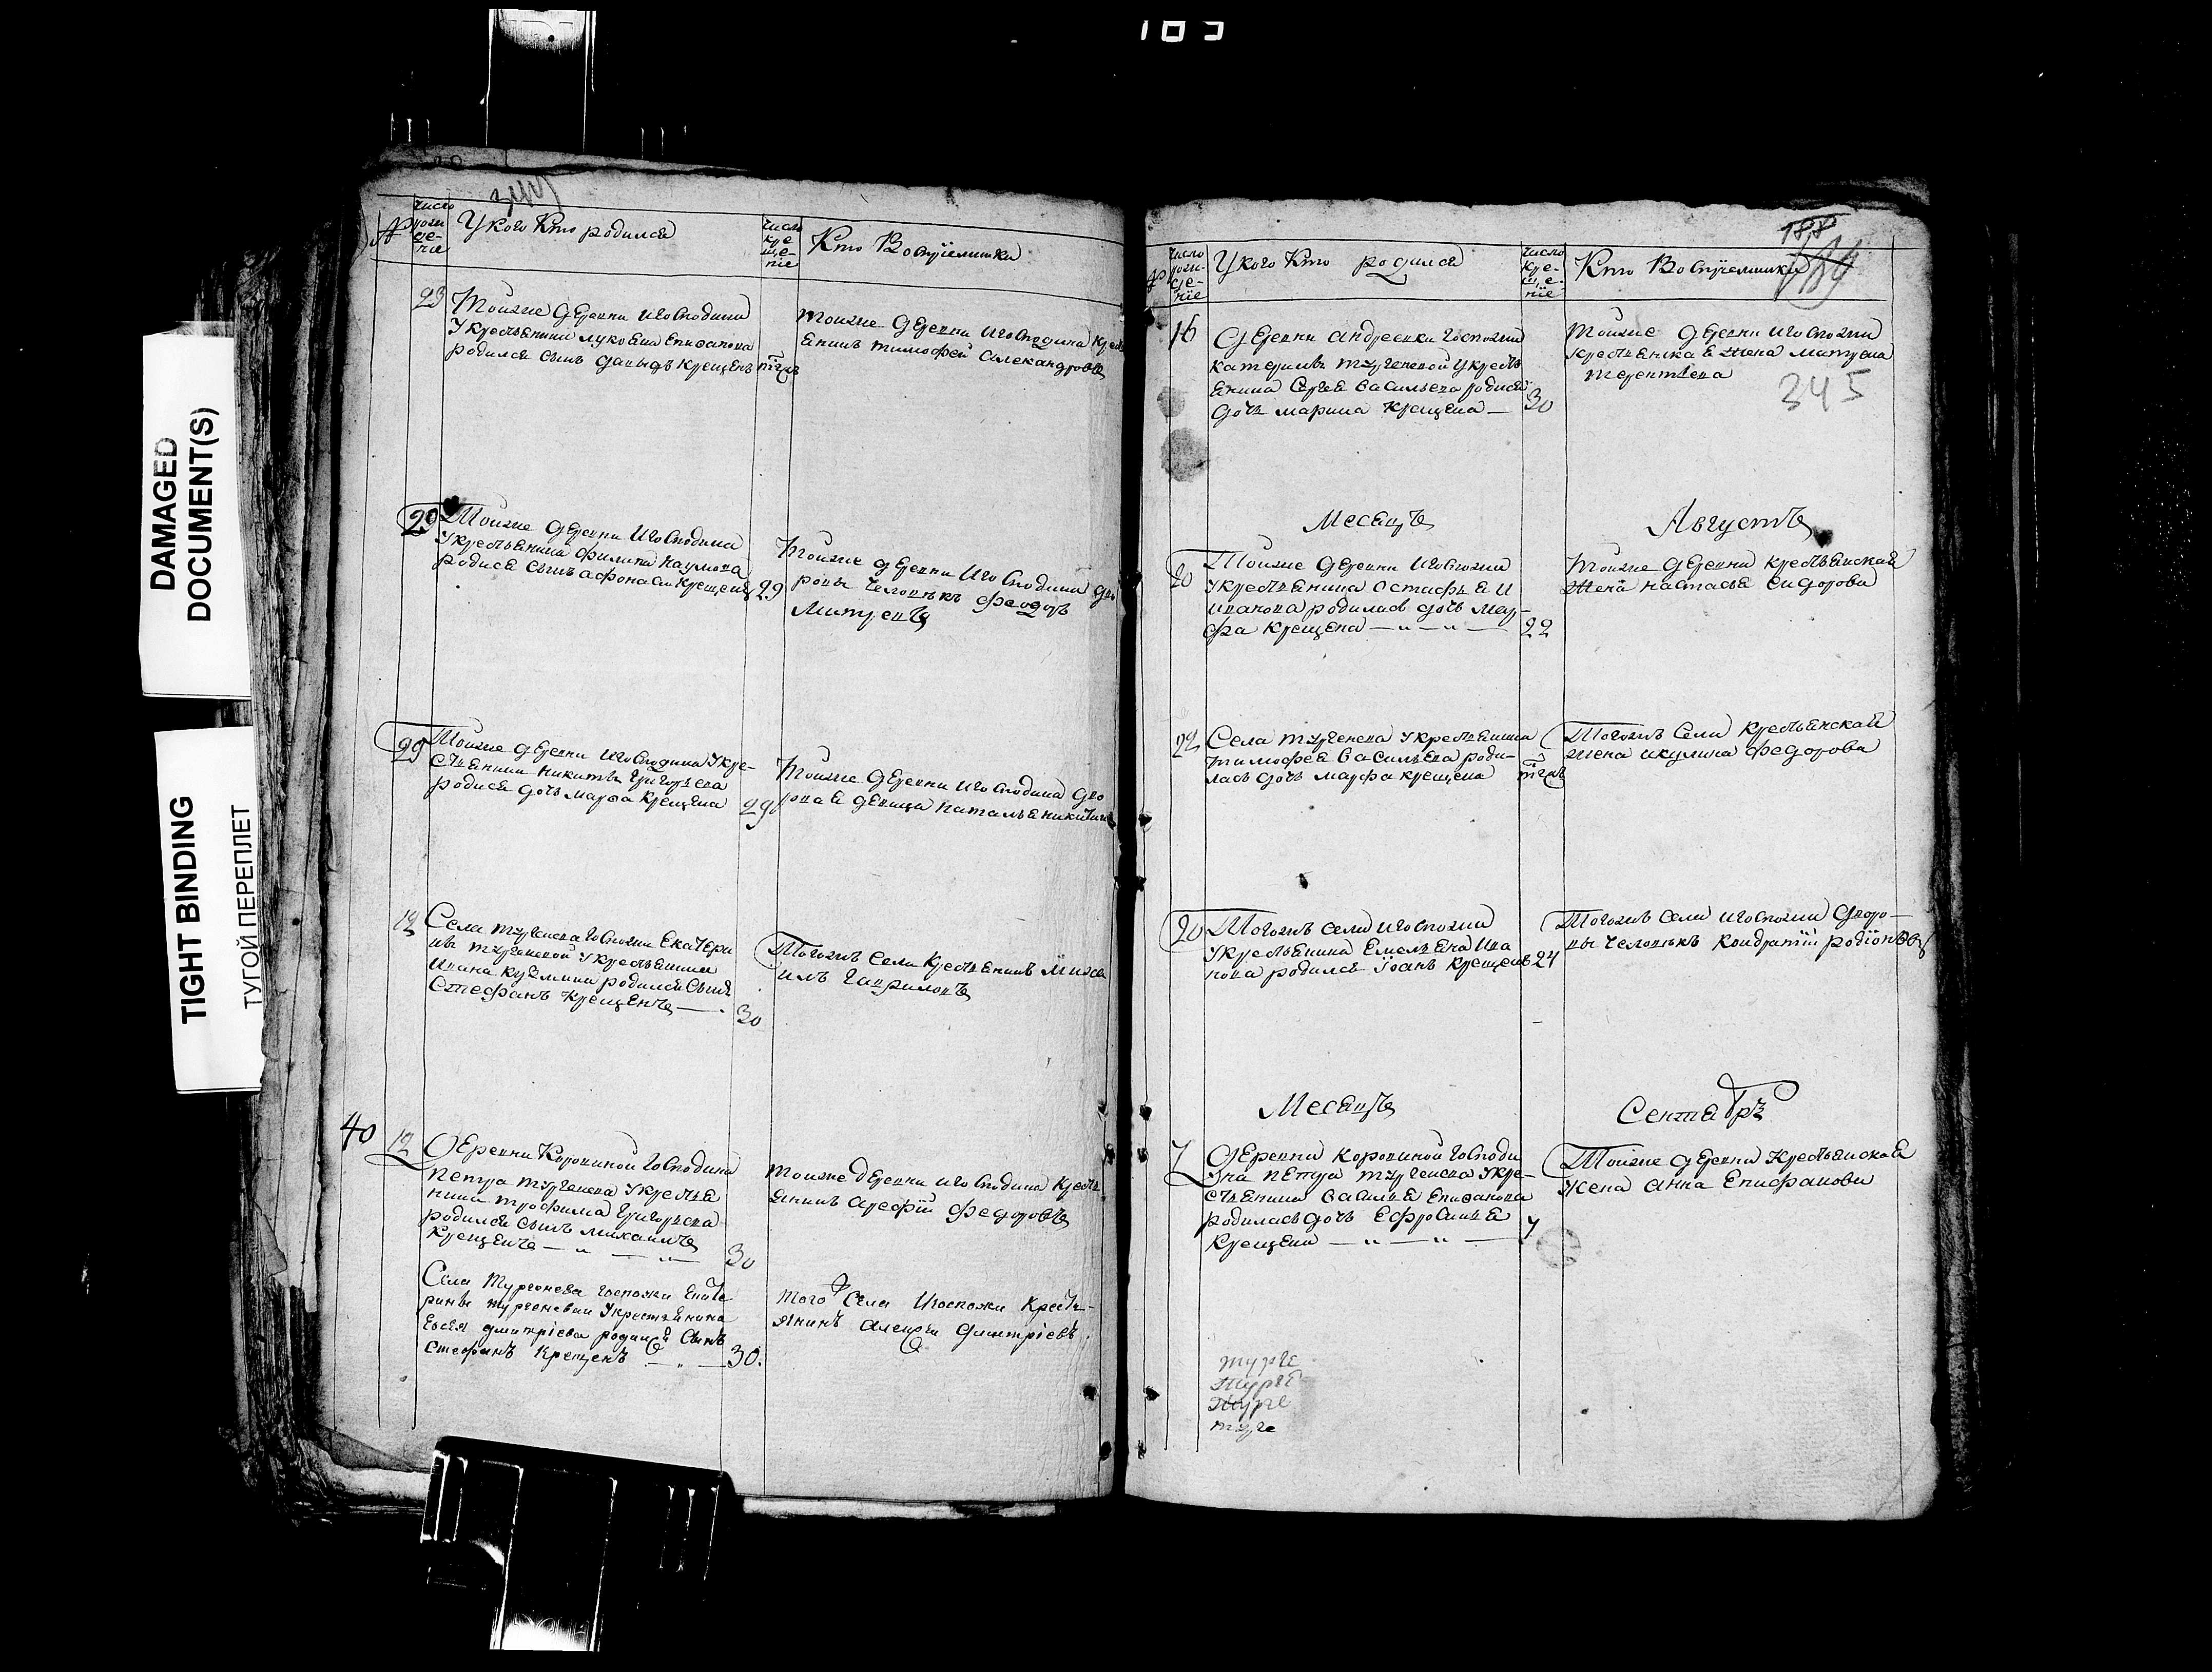 185
DAMAGED
DOCUMENT(S)
TIGHT BINDING
ТУГОЙ ПЕРЕПЛЕТ
344
№
число
рож
де-
ние
У кого Кто родился
число
кре
ще-
ние
Кто Воспрїемники
23
Тоиже деревни иГосподина
Укрестьянина лукояна Епифанова
родился сынъ давыдъ крещенъ
тоиже деревни иГосподина крест
янинъ тимофей Александровъ
29
Тоиже деревни иГосподина
Укрестьянина филипа наумова
родися сынъ афонасии крещенъ 29
тоиже деревни иГосподина дво
ровы человекъ феодоръ
Митревъ
29
Тоиже деревни иГосподина Укре-
стьянина никиты Григорьева
родися дочь марфа крещена 29
тоиже деревни иГосподина дво
ровая девица наталья никитина
12
Села тургенева Госпожи Екатери
ны тургеневой Укрестьянина
Ивана кузмина родился сынъ
Стефанъ крещенъ — 30
Тогожъ села крестьянинъ Миха
илъ Гавриловъ
40
12
Деревни Коровиной Господина
Петра тургенева Укрестья
нина трофима Григорьева
родился сынъ михаилъ
крещенъ — „ — „ — 30
тоиже деревни иГосподина крест
янинъ арефїй федоровъ
Села Тургенева госпожи Екате
рины тургеневой Укрестьянина
Евсея дмитрїева родился Сынъ
стефанъ крещенъ — „ — 30.
того Села Игоспожи Крестъ-
янинъ алексеи дмитрїевъ.
188
189
№
число
рож-
де-
нїе
У кого Кто родился
число
кре-
ще-
нїе
Кто Воспрїемники
16
деревни андреевки госпожи
катерины тургеневой Укресть
янина Сергея васильева родися
дочь марина крещена — 30
тоиже деревни иГоспожи
крестьянинка Жена матрена
терентьева
345
Месяцъ Августъ
20
Тоиже деревни иГоспожи
Укрестьянина остафья И
иванова родилась дочь мар-
фа крещена — „ — „ — 22
тоиже деревни крестьянская
Жена настасья сидорова
22
Села тургенева Укрестьянина
тимофея васильева роди-
лась дочь марфа крещена
Тогожъ Села крестьянская
жена акулина федорова
20
Тогожъ села иГоспожи
Укрестьянина Емельяна Ива
нова родился Їоанъ крещенъ 24
Тогожъ села иГоспожи дворо-
вы человекъ кондратїи родїоновъ
Месяцъ Сентябрь
7
Деревни коровиной Господи
на петра тургенева Укре-
стьянина василья Епифанова
родилась дочь Ефросинья
крещена — „ — „ — 7
Тоиже деревни Крестьянская
Жена анна Епифанова
турге
Турге
Турге
турге